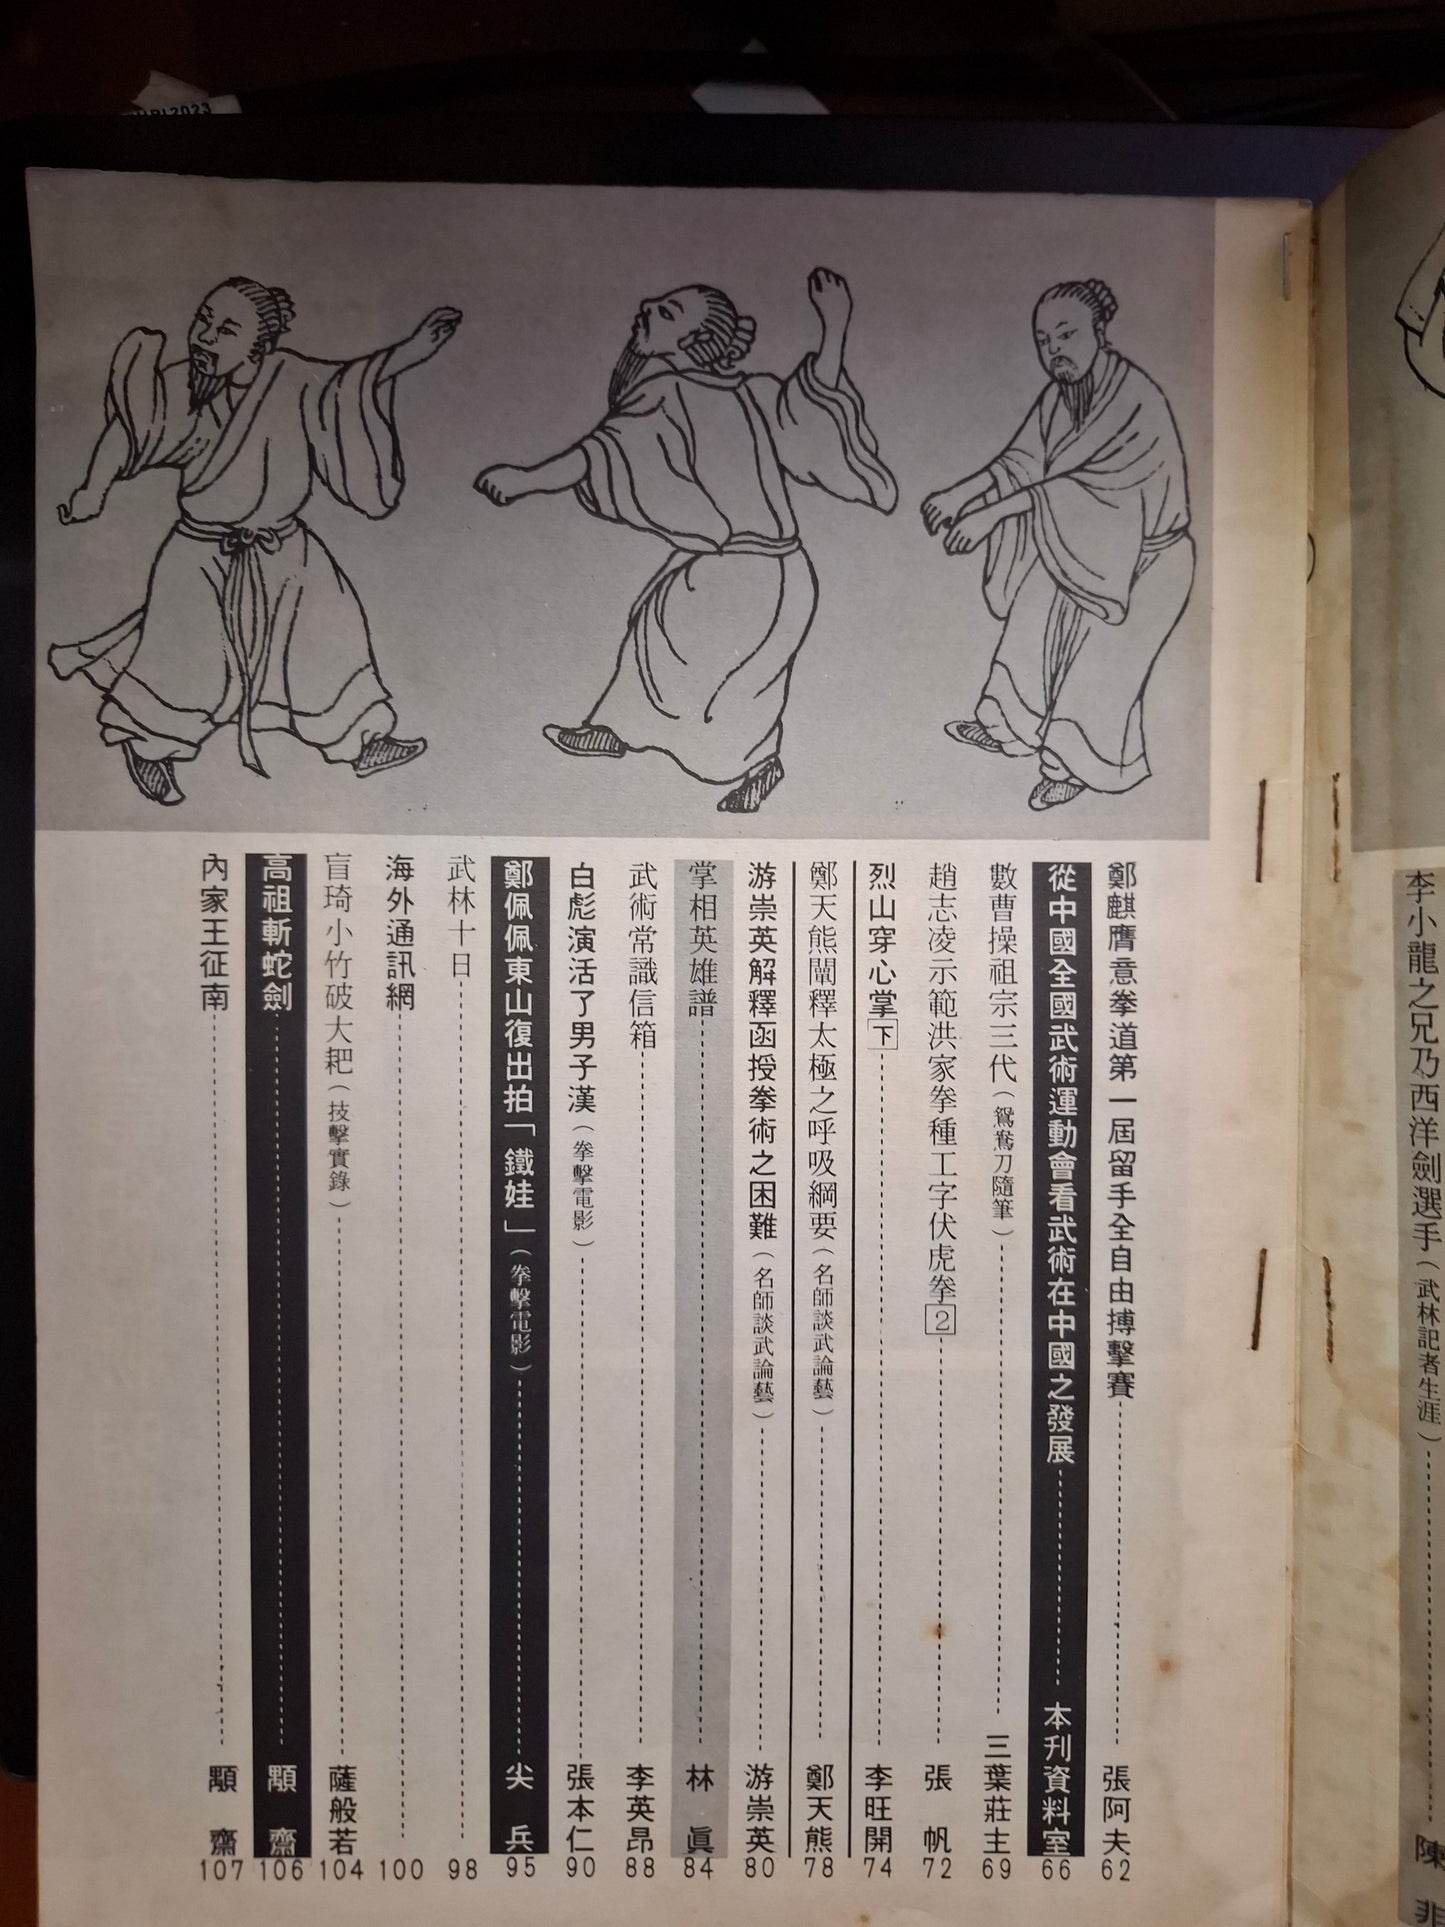 李小龍之兄乃西洋劍選手(武林記者生涯)⋯⋯陳 非
鄭麒膺意拳道第一屆留手全自由搏擊賽⋯⋯張阿夫 62
從中國全國武術運動會看武術在中國之發展⋯⋯本刊資料室 66
數曹操祖宗三代(鴛鴦刀隨筆)⋯⋯三葉莊主 69
趙志凌示範洪家拳種工字伏虎拳2⋯⋯張 帆 72
烈山穿心掌下⋯⋯李旺開 74
鄭天熊闡釋太極之呼吸綱要(名師談武論藝)⋯⋯鄭天熊 78
游崇英解釋函授拳術之困難(名師談武論藝)⋯⋯游崇英 80
掌相英雄譜⋯⋯林 眞 84
武術常識信箱⋯⋯李英昂 88
白彪演活了男子漢(拳擊電影)⋯⋯張本仁 90
鄭佩佩東山復出拍「鐵娃」(拳擊電影)⋯⋯尖 兵 95
武林十日⋯⋯98
海外通訊網⋯⋯100
盲琦小竹破大耙(技擊實錄)⋯⋯薩般若 104
高祖斬蛇劍⋯⋯顒 齋 106
內家王征南⋯⋯顒 齋 107